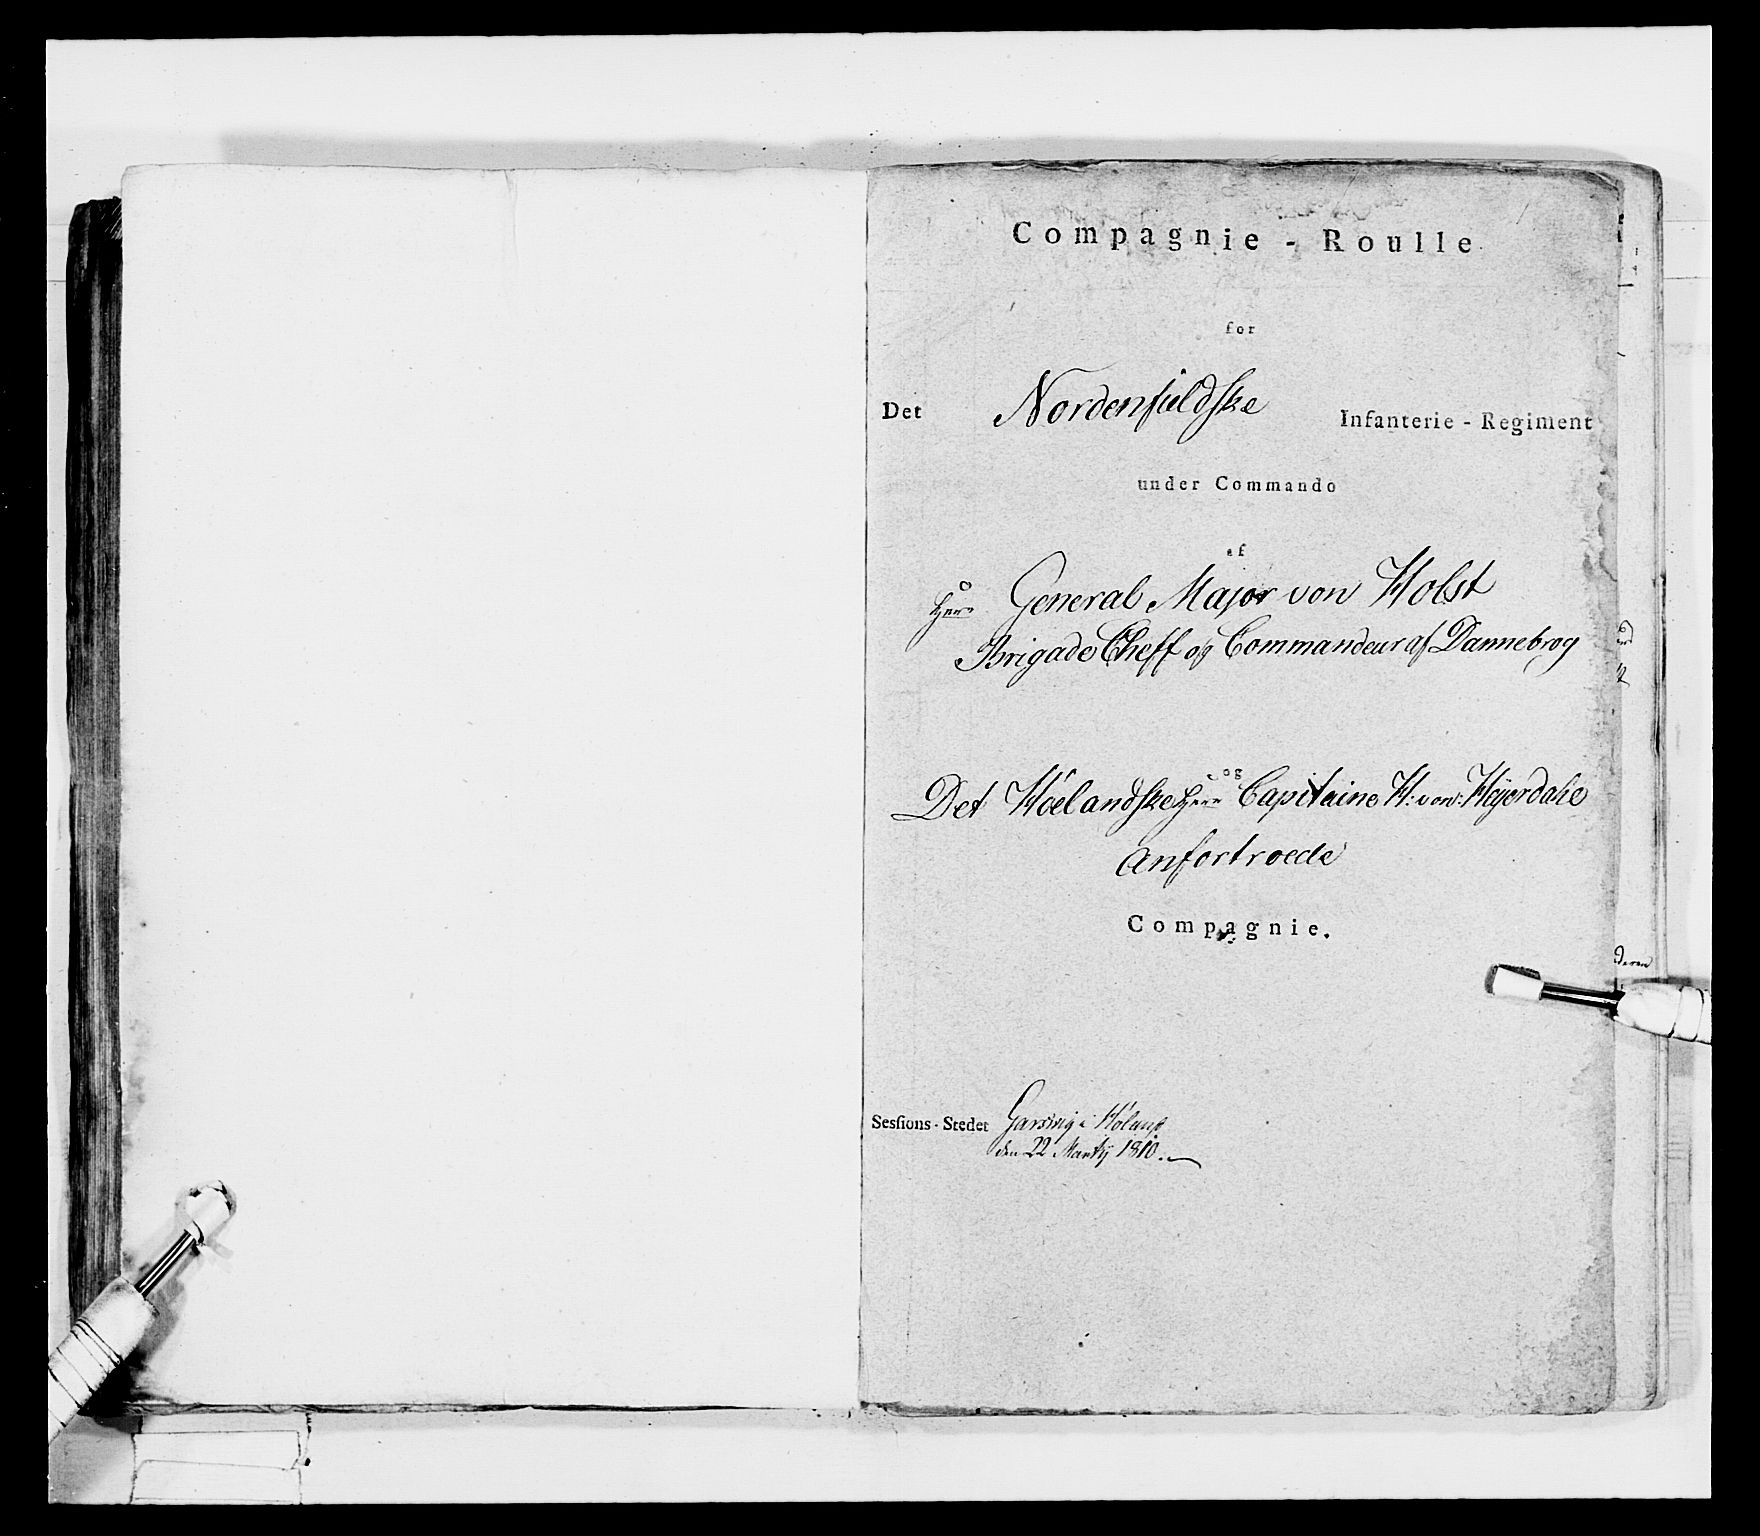 Compagnie - Roulle
for
Det Nordenfieldske Infanterie - Regiment
under Commando
af
Herr General Major von Holst
Brigade Cheff og Commandeur af Dannebrog
og
Det Hoelandske Herr Capitaine H: von: Heyerdahl
Anfortroede
Compagnie.
Sessions-Stedet i Höland
den 22 Martij 1810.